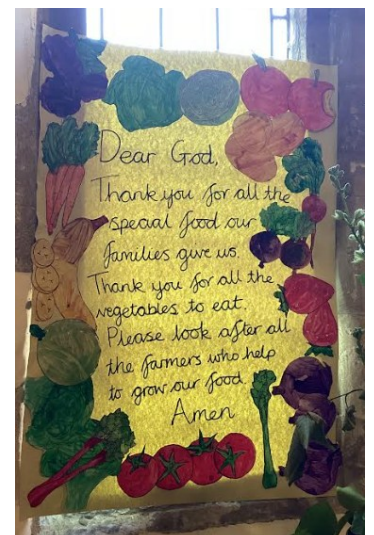 Dear God,
Thank you for all the
special food our
families give us.
Thank you for all the
vegetables to eat.
Please look after all
the farmers who help
to grow our food.
Amen